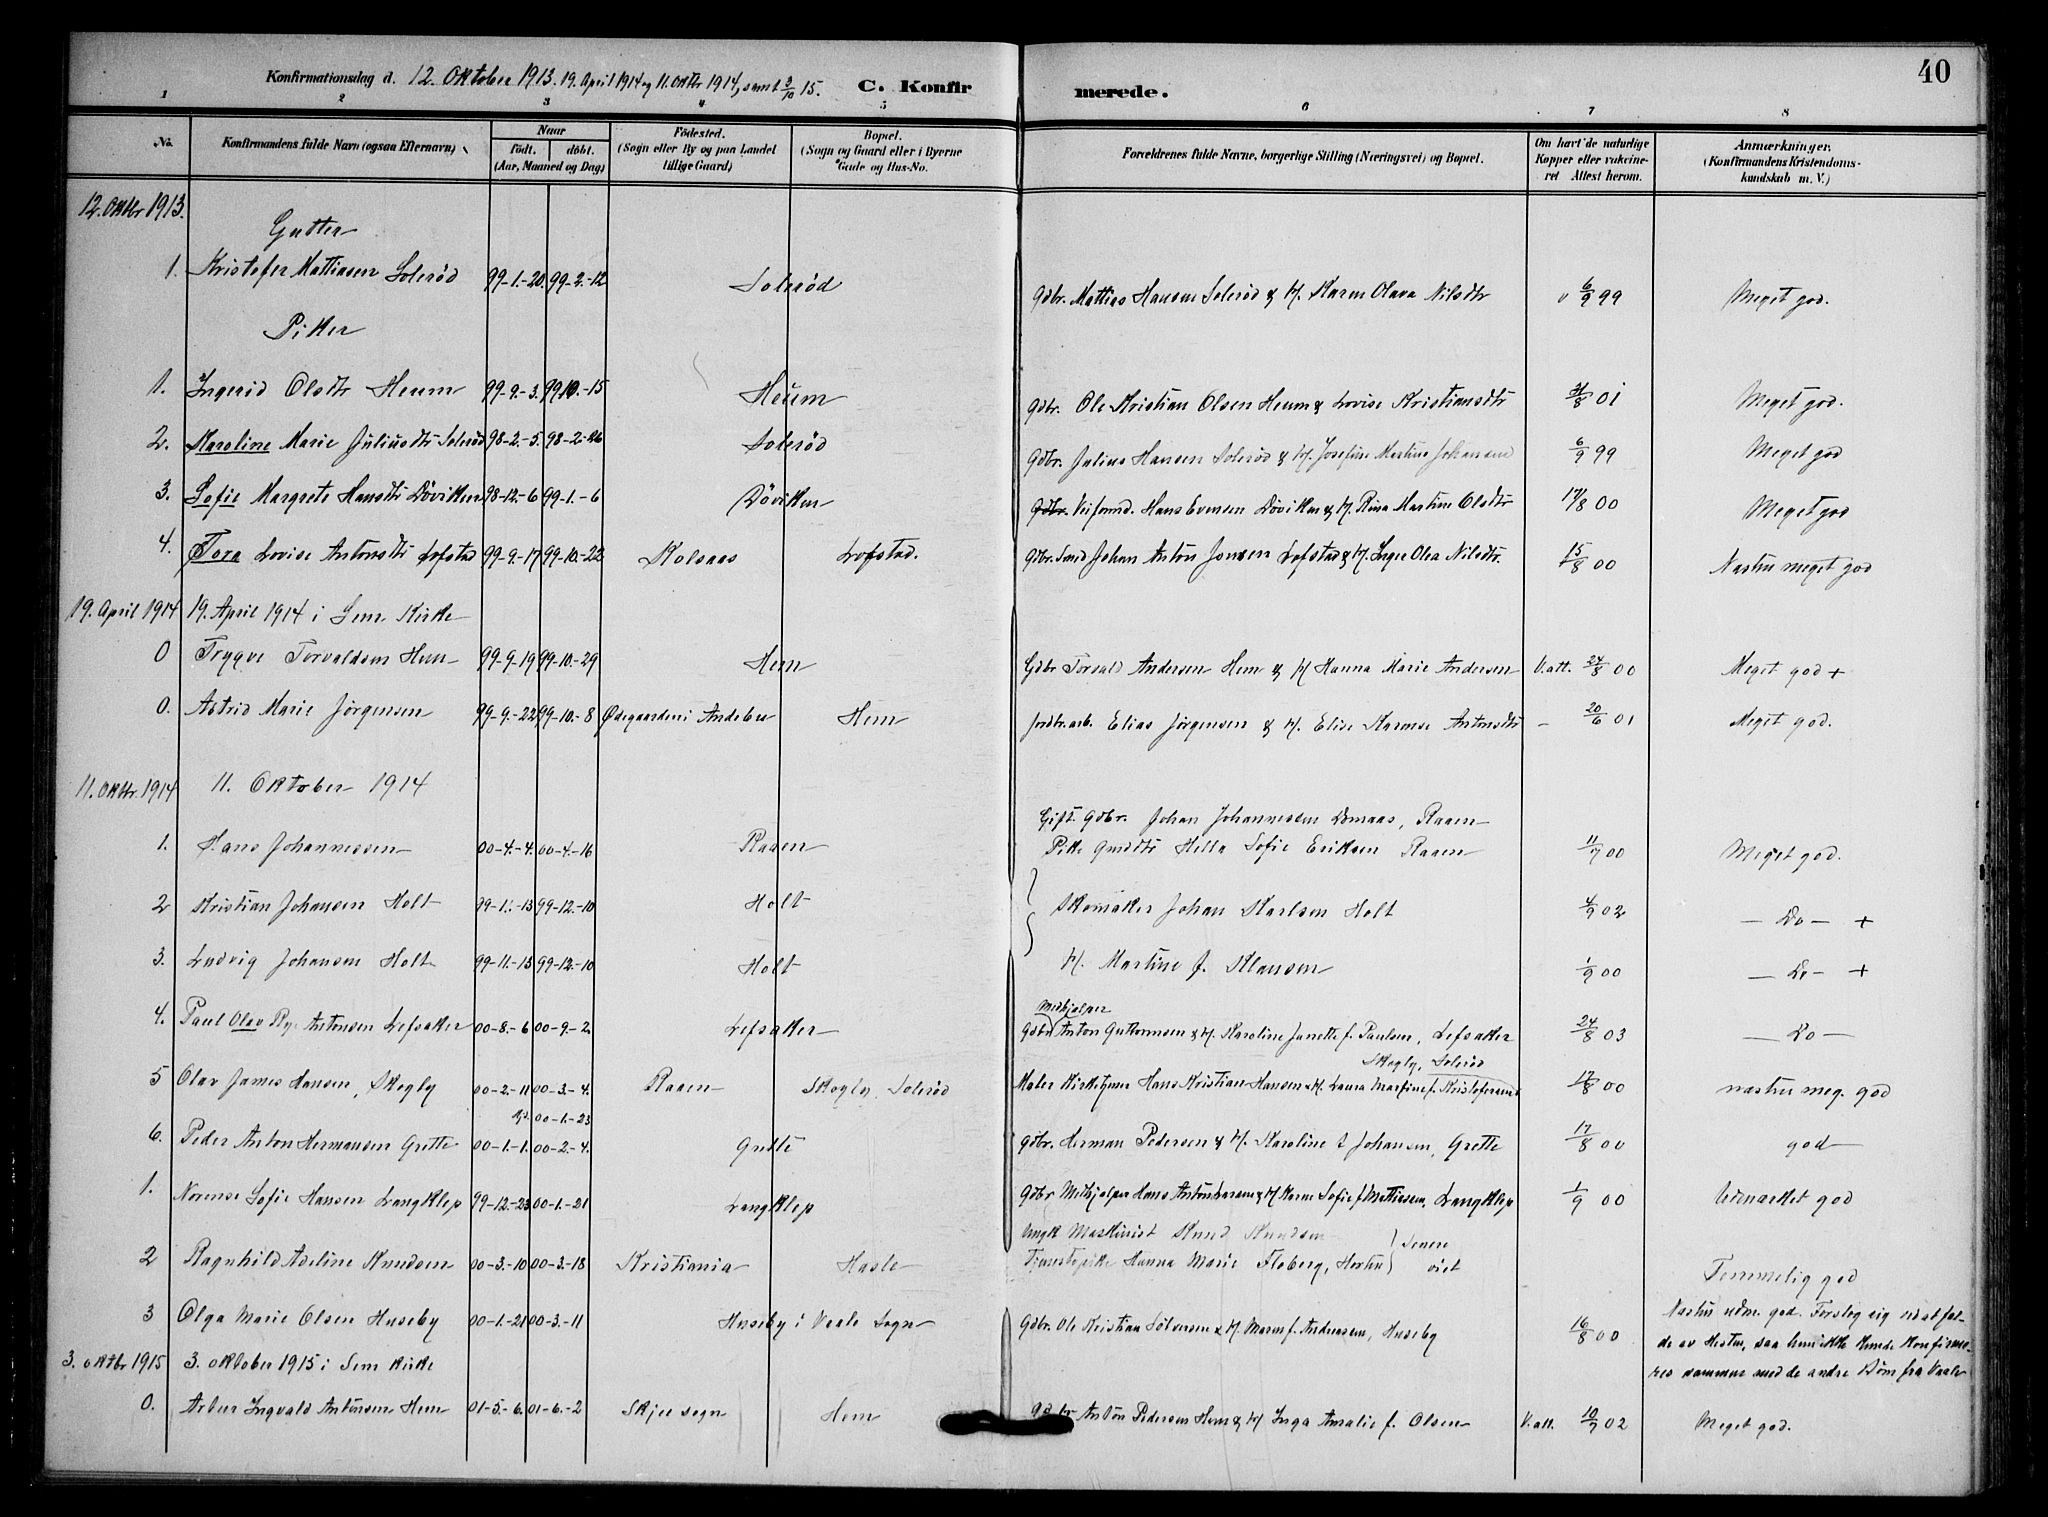 40
Konfirmationsdag d. 12. Oktober 1913. 19. April 1914 og 11. Oktbr 1914, samt 3/10 15. C. Konfirmerede.
1 2 3 4 5 6 7 8
No. Konfirmandens fulde Navn (ogsaa Efternavn) Naar födt. döbt. (Aar, Maaned og Dag) Födested. (Sogn eller By og paa Landet tillige Gaard) Bopæl. (Sogn og Gaard eller i Byerne Gade og Hus-No. Forældrenes fulde Navne, borgerlige Stilling (Næringsvei) og Bopæl. Om havt de naturlige Kopper eller vakcineret Attest herom. Anmærkninger. (Konfirmandens Kristendomskundskab m. V.)
12. Oktbr 1913.
Gutter
1. Kristofer Mattiasen Solerød 99-1.-20. 99-2.-12 Solerød Gdbr. Mattias Hansen Solerød & H. Karen Olava Nilsdtr v 6/9 99 Meget god.
Piker
1. Ingerid Olsdtr Heum 99-9-3. 99 10.-15 Heum Gdbr. Ole Kristian Olsen Heum & Lovise Kristiansdtr 21/8 01 Meget god.
2. Karoline Marie Juliusdtr Solerød 98-2.-5. 98-2.-26 Solerød Gdbr. Julius Hansen Solerød & H. Josefine Martine Johansend 6/9 99 Meget god
3. Sofie Margrete Hansdtr Døviken 98-12.-6 99-1.-6 Døviken Gdbr. Veiformd. Hans Evensen Døviken & H. Rina Martine Olsdtr 17/8 00 Meget god
4. Tora Lovise Antonsdtr Lofstad 99-9.-17 99-10.-22 Kolsaas Lofstad. Gdbr. Smed Johan Anton Jonsen Lofstad & H. Inger Olea Nilsdtr. 15/8 00 Næsten meget god
19. April 1914 19. April 1914 i Sem Kirke
0 Trygve Torvaldsen Hem 99-9-19 99-10.-29 Hem Gdbr Torvald Andersen Hem & H Hanna Marie Andersen V.att. 24/8 00 Meget god +
0. Astrid Marie Jørgensen 99-9.-22 99-10.-8 Ødegaarden i Andebu Hem Jordbr.arb. Elias Jørgensen & H. Elise Karense Antonsdtr - 20/6 01 Meget god.
11. Oktbr. 1914 11. Oktober 1914
Gift Gdbr. Johan Johannessen Aamaas, Raaen
1. Hans Johannessen 00-4.-4. 00-4.-16 Raaen Pike Gmdtr Hella Sofie Eriksen Raaen 11/7 00 Meget god.
2 Kristian Johansen Holt 99-11.-13 99-12.-10 Holt Skomaker Johan Karlsen Holt 4/9 02 - Do - +
3. Ludvig Johansen Holt 99-11.-13 99-12.-10 Holt H. Martine f. Klausen 1/9 00 - Do - +
Medhjelper
4. Paul Olav Antonsen Lefsaker 00-8.-6 00-9.-2. Lefsaker Gdbr Anton Guttormsen & H. Karoline Janette f. Paulsen, Lefsaker 24/8 03 - Do -
Skogly, Solerød
5 Olav James Hansen, Skogly 00-2.-11 00-3.-4. Raaen Skogly, Solerød Maler Kirketjener Hans Kristian Hansen & H. Laura Martine f. Kristofersend 17/8 00 næsten meg. god
00-1.-23
6. Peder Anton Hermansen Grette 00-1.-1. 00-2.-4. Grette Gdbr. Herman Pedersen & H. Karoline f Johansen, Grette 17/8 00 god
1. Norense Sofie Hansen Langklep 99-12.-23 00-1.-21 Langklep Gdbr Medhjelper Hans Anton Larsen & H Karen Sofie f Mattiasen, Langklep 1/9 00 Udmærket god
Ungk Maskinist Knud Knudsen
2 Ragnhild Adeline Knudsen 00-3.-10 00-3.-18 Kristiania Hasle Tjenestepike Hanna Marie Floberg, Horten } Senere viet Temmelig god
3 Olga Marie Olsen Huseby 00-1.-21 00-3.-11 Huseby i Vaale Sogn Gdbr. Ole Kristian Sölversen & H. Maren f. Andreasen, Huseby 16/8 00 Næsten udm. god. Forslog sig ved at falde av Hesten, saa hun ikke kunde konfirmeres sammen med de andre Børn fra Vaale
3. oktbr 1915 3. oktober 1915 i Sem kirke
0. Artur Ingvald Antonsen Hem 01-5.-6. 01-6.-2 Skjee sogn Hem Gdbr Anton Pedersen Hem & H Inga Amalie f. Olsen V.att. 10/9 02 Meget god.